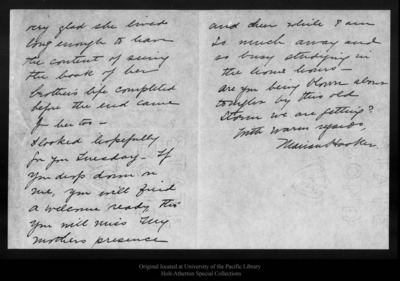 very glad she lived
long enough to have
the content of seeing
the book of her
brothers life completed
before the end came
for her too -
I looked hopefully
for you Tuesday - If
you drop down on
me, you will find
a welcome ready, tho'
you will miss my
mothers presence
and then while I am
so much away and
so busy studying in
the home hours -
are you being blown about
tonight by this old
storm we are getting?
With warm regards,
Marian Hooker.
Original located at University of the Pacific Library
Holt-Atherton Special Collections